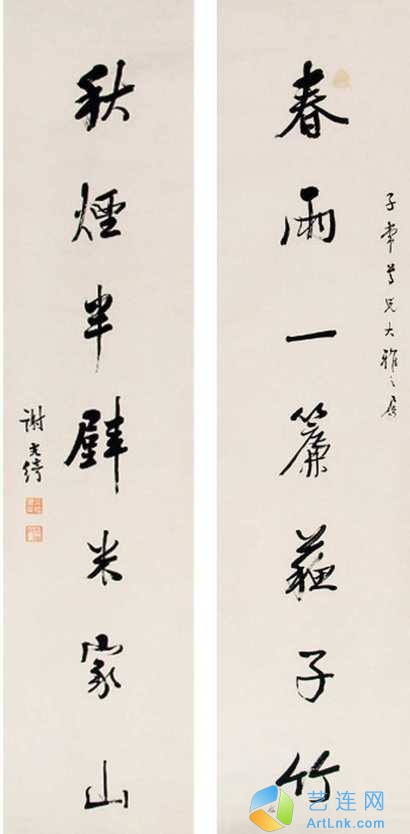 春雨一簾蘓子竹
子常尊兄大雅之属
秋煙半壁米家山
謝光綺
艺连网
ArtLnk.com